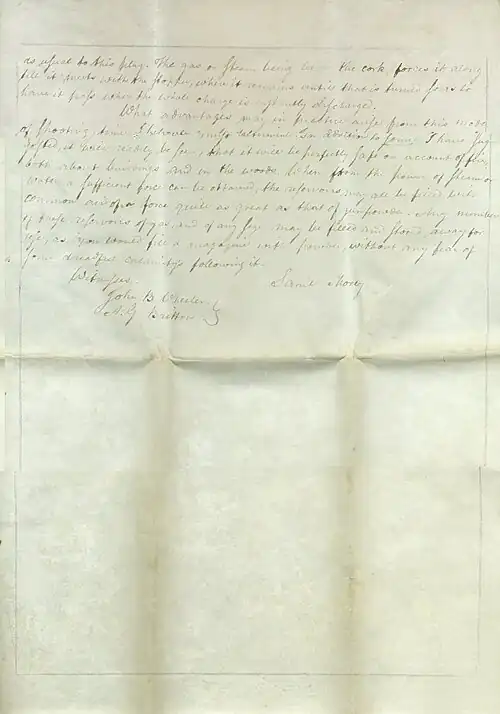 is equal to this plug. The gas or Steam being let the cork, forces it along
till it meets with the stopper, where it remains untill that is turned so as to
have it pass when the whole charge is instantly discharged.
What advantages may in practice arise from this mode
of shooting time & but must determine. In addition to some I have sug-
gested, it will readily be seen, that it will be perfectly safe on account of fire
both about buildings and in the woods. When from the power of steam or
water, a sufficient force can be obtained, the reservoirs may all be fired with
common air of a force quite as great as that of gunpowder. Any number
of these reservoires of gas, and of any size may be filled and stored away for
use, as you would fill a magazine with powder, without any fear of
some dreadful calamity's following it.
Witnesses. Saml Morey
John B. Wheeler
A. G. Britton